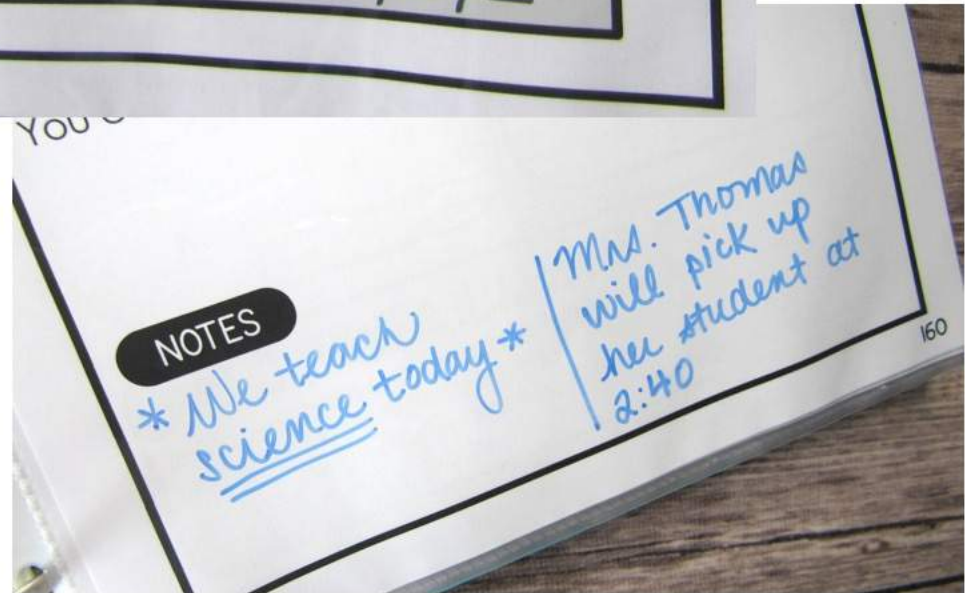 YOU
NOTES
* We teach
science today *
Mrs. Thomas
will pick up
her student at
2:40
160